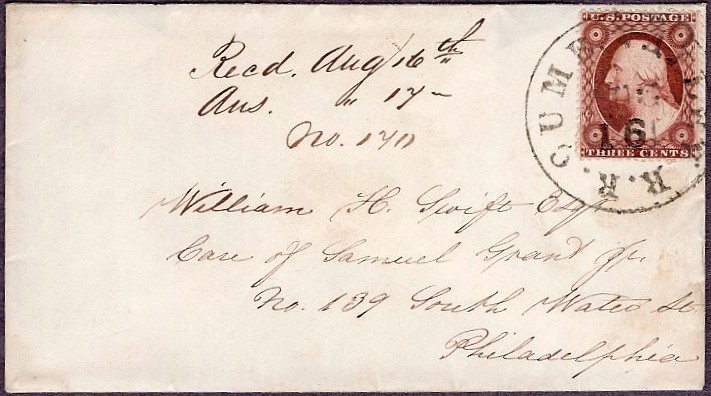 Recd. Aug 16th
Ans. " 17 -
No. 170
U.S. POSTAGE
THREE CENTS
16
R.R.
William H. Swift Esqr
Care of Samuel Grant Jr.
No. 139 South Water St
Philadelphia